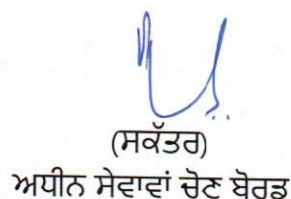 (ਸਕੱਤਰ)
ਅਧੀਨ ਸੇਵਾਵਾਂ ਚੋਣ ਬੋਰਡ